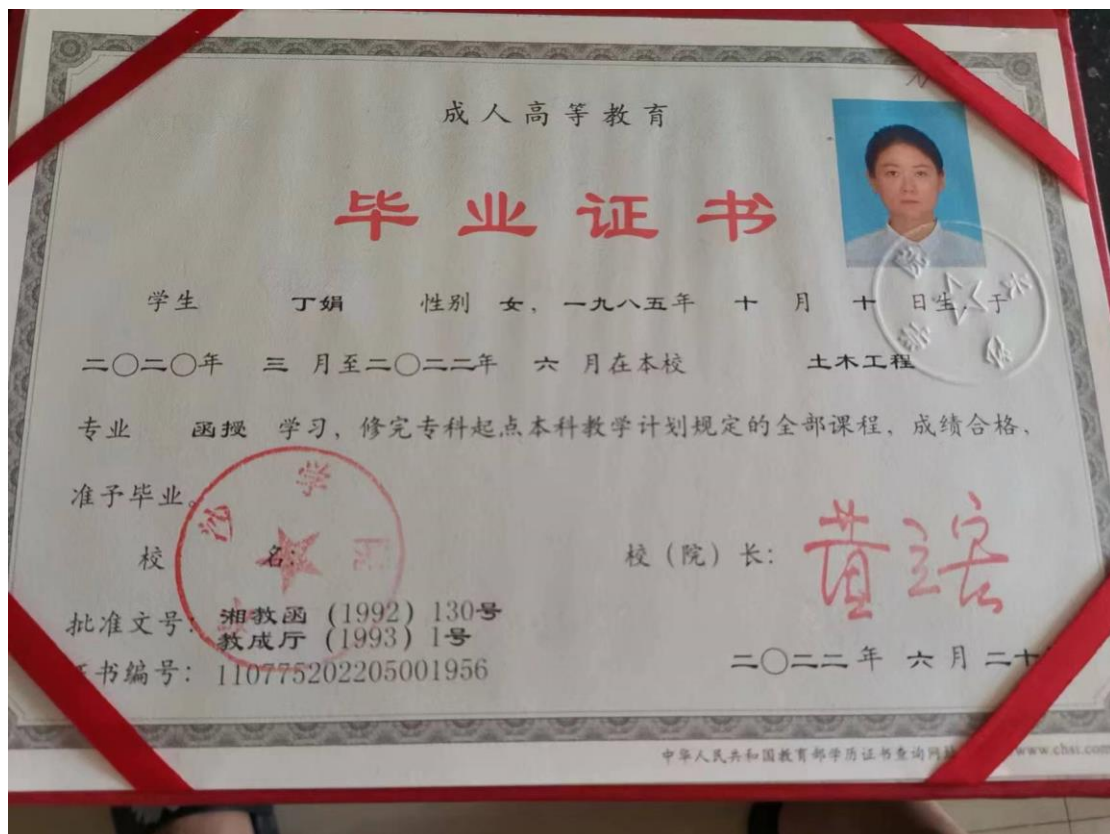 成人高等教育
毕业证书
学生 丁娟 性别 女，一九八五年 十 月 十 日生，于
二〇二〇年 三 月至二〇二二年 六 月在本校 土木工程
专业 函授 学习，修完专科起点本科教学计划规定的全部课程，成绩合格，
准予毕业。
校 名： 校（院）长：
批准文号：湘教函（1992）130号
教成厅（1993）1号
书编号：110775202205001956 二〇二二年 六月二十
中华人民共和国教育部学历证书查询网 www.chsi.com